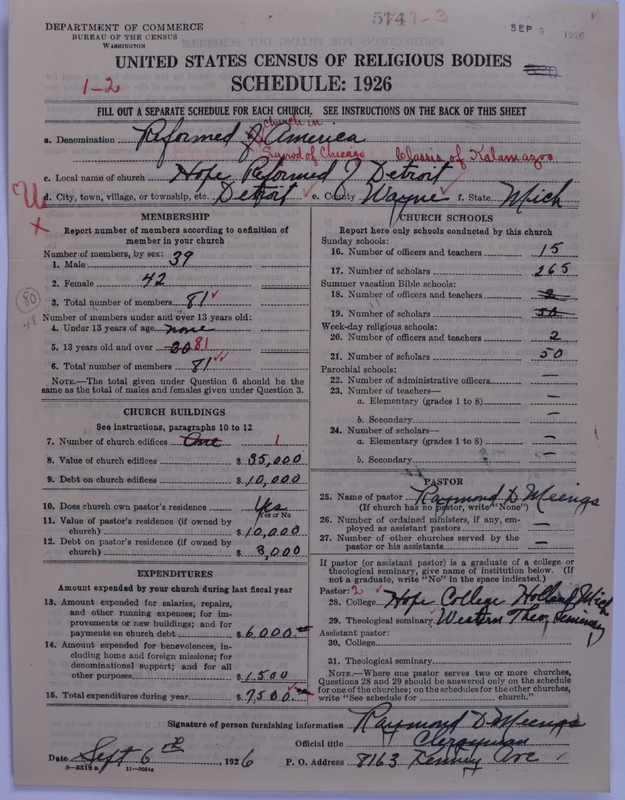 DEPARTMENT OF COMMERCE
BUREAU OF THE CENSUS
WASHINGTON
574
7-3
SEP 9 1926
1-2
UNITED STATES CENSUS OF RELIGIOUS BODIES
SCHEDULE: 1926
FILL OUT A SEPARATE SCHEDULE FOR EACH CHURCH. SEE INSTRUCTIONS ON THE BACK OF THIS SHEET
church in
a. Denomination Reformed of America
Synod of Chicago Classis of Kalamazoo
c. Local name of church Hope Reformed of Detroit
d. City, town, village, or township, etc. Detroit e. County Wayne f. State Mich
MEMBERSHIP
Report number of members according to definition of
member in your church
Number of members, by sex:
1. Male 39
2. Female 42
3. Total number of members 81
Number of members under and over 13 years old:
4. Under 13 years of age none
5. 13 years old and over 81
6. Total number of members 81
NOTE.—The total given under Question 6 should be the
same as the total of males and females given under Question 3.
80
48
CHURCH BUILDINGS
See instructions, paragraphs 10 to 12
7. Number of church edifices One 1
8. Value of church edifices $ 35,000
9. Debt on church edifices $ 10,000
10. Does church own pastor's residence Yes
Yes or No
11. Value of pastor's residence (if owned by
church) $ 10,000
12. Debt on pastor's residence (if owned by
church) $ 3,000
EXPENDITURES
Amount expended by your church during last fiscal year
13. Amount expended for salaries, repairs,
and other running expenses; for im-
provements or new buildings; and for
payments on church debt $ 6,000
14. Amount expended for benevolences, in-
cluding home and foreign missions; for
denominational support; and for all
other purposes $ 1,500
15. Total expenditures during year $ 7500
CHURCH SCHOOLS
Report here only schools conducted by this church
Sunday schools:
16. Number of officers and teachers 15
17. Number of scholars 265
Summer vacation Bible schools:
18. Number of officers and teachers 2
19. Number of scholars 50
Week-day religious schools:
20. Number of officers and teachers 2
21. Number of scholars 50
Parochial schools:
22. Number of administrative officers —
23. Number of teachers—
a. Elementary (grades 1 to 8) —
b. Secondary —
24. Number of scholars—
a. Elementary (grades 1 to 8) —
b. Secondary —
PASTOR
25. Name of pastor Raymond D Meengs
(If church has no pastor, write "None")
26. Number of ordained ministers, if any, em-
ployed as assistant pastors —
27. Number of other churches served by the
pastor or his assistants —
If pastor (or assistant pastor) is a graduate of a college or
theological seminary, give name of institution below. (If
not a graduate, write "No" in the space indicated.)
Pastor: 2
28. College Hope College Holland Mich
29. Theological seminary Western Theo. Seminary
Assistant pastor:
30. College
31. Theological seminary
NOTE.—Where one pastor serves two or more churches,
Questions 28 and 29 should be answered only on the schedule
for one of the churches; on the schedules for the other churches,
write "See schedule for church."
Signature of person furnishing information Raymond D Meengs
Official title Clergyman
Date Sept 6, 1926 P. O. Address 8163 Kenney Ave
8-5318a 11-9084a